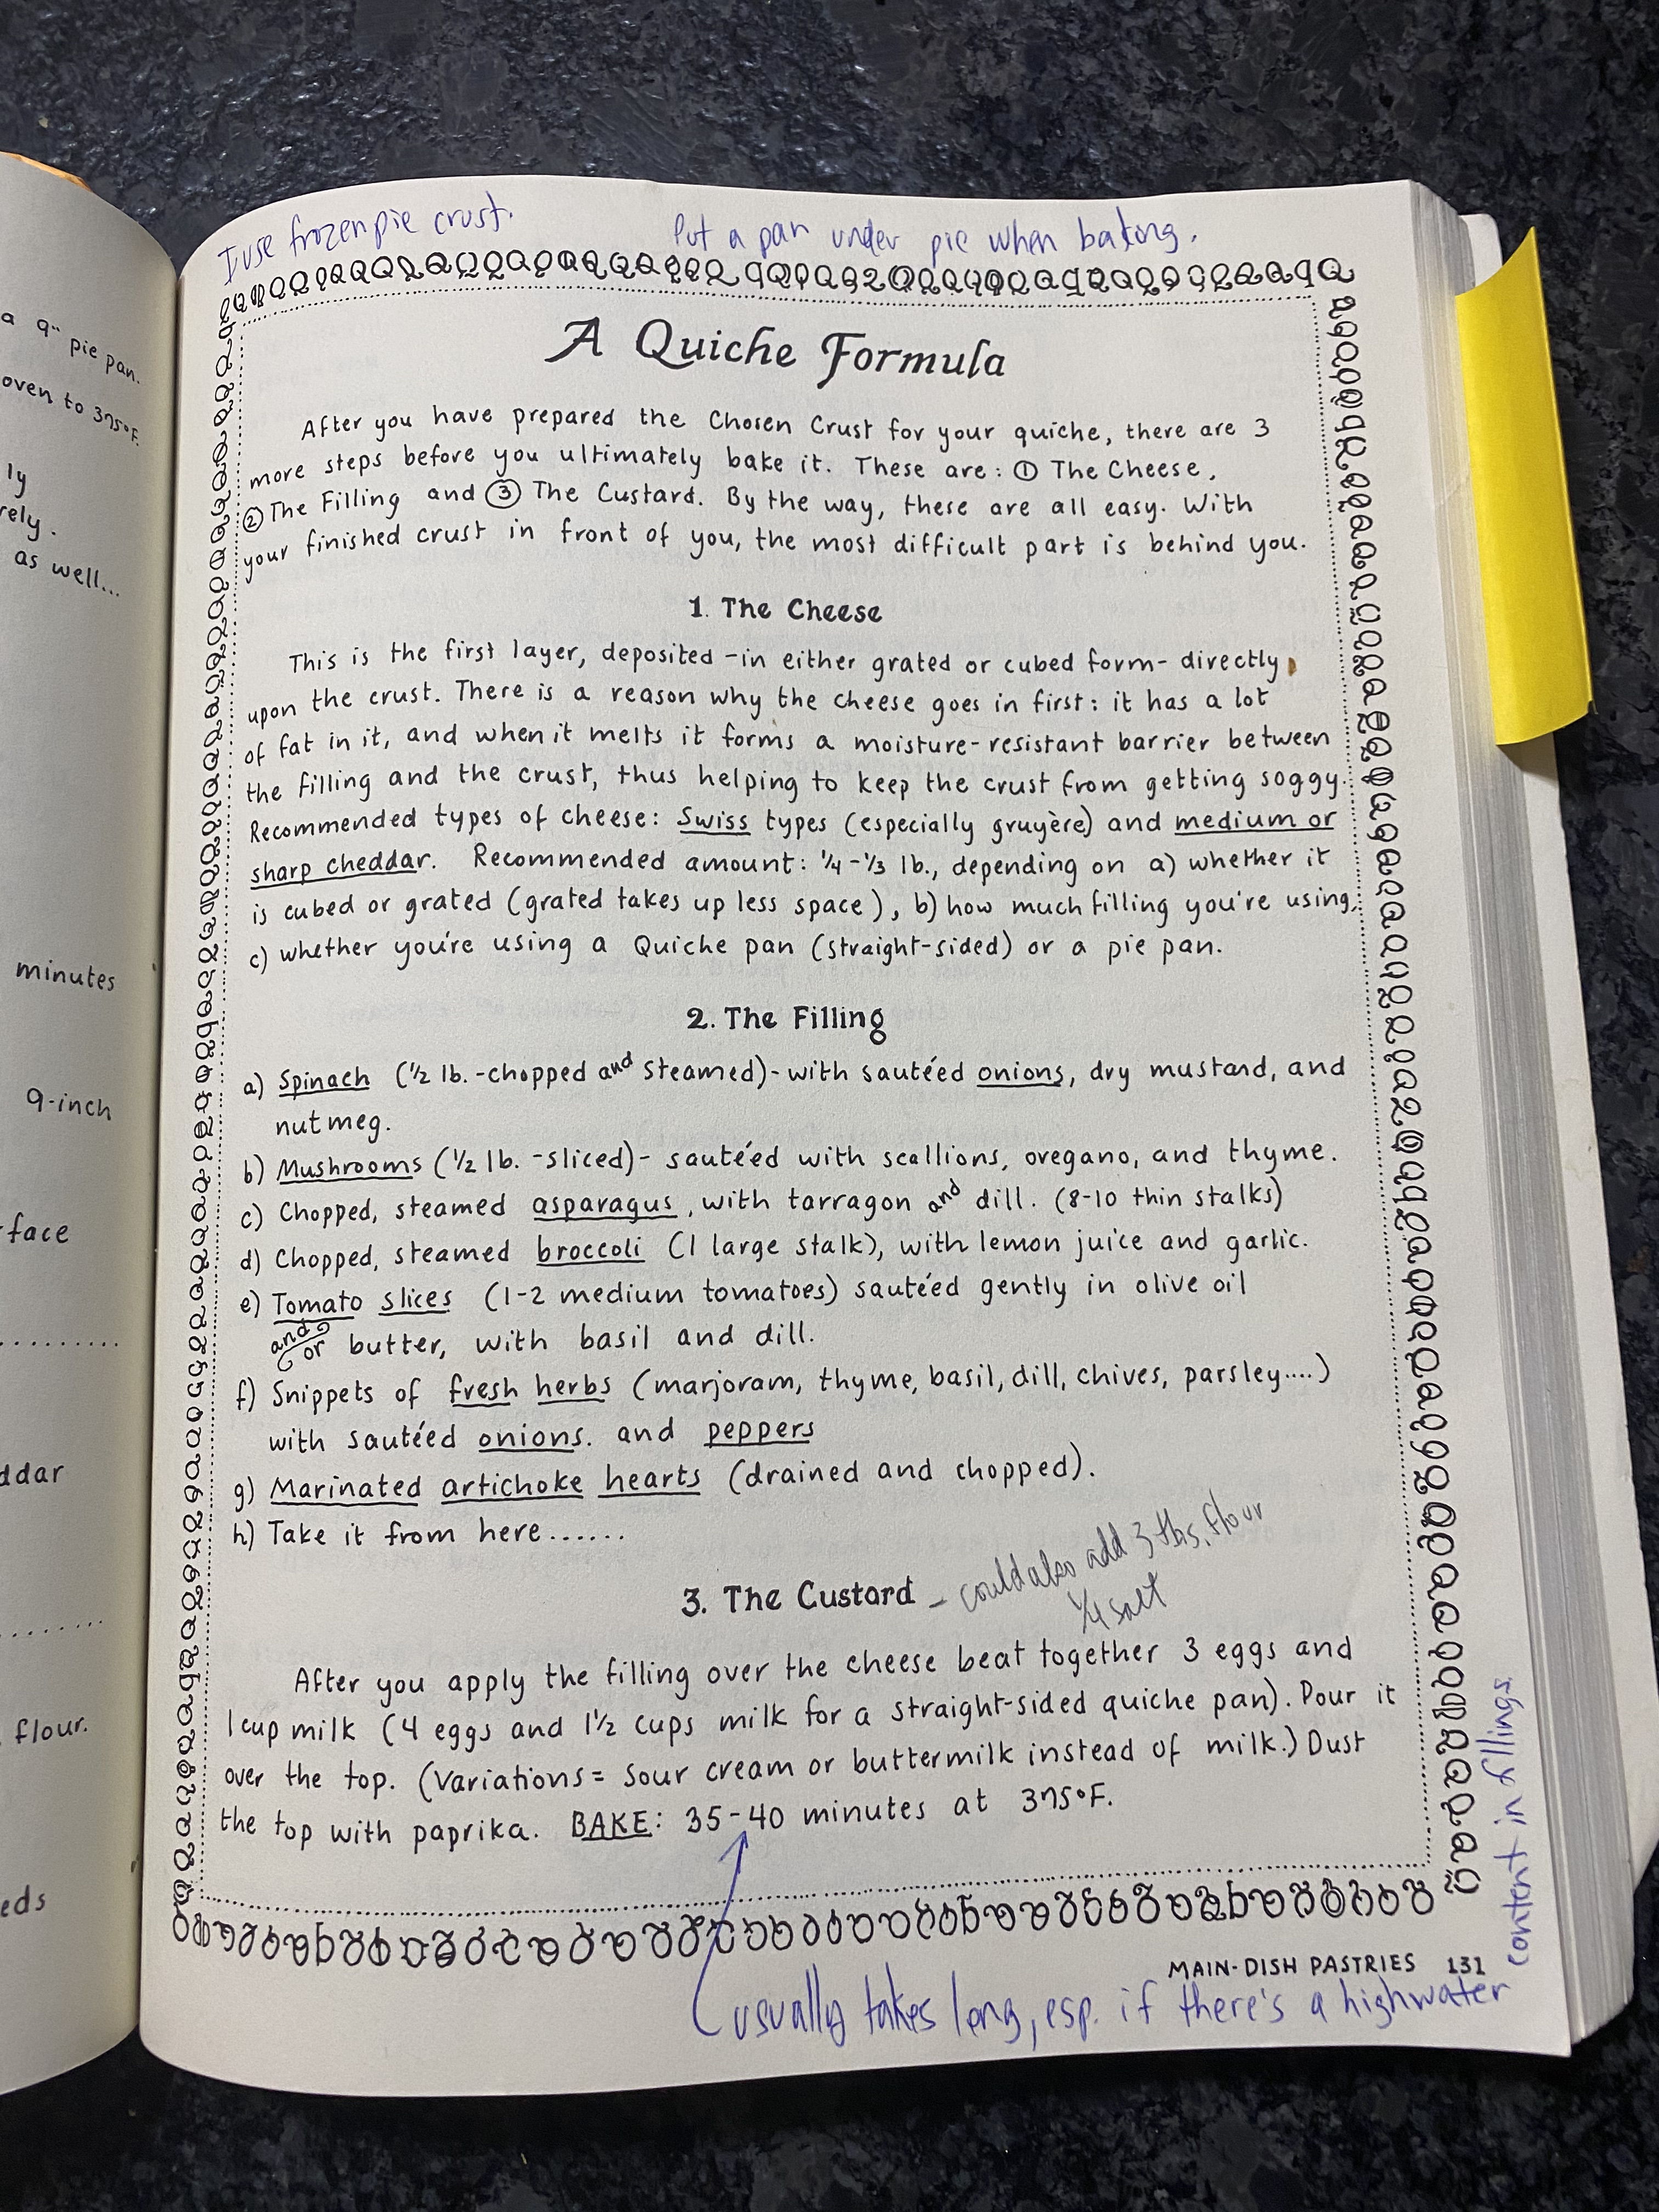 a 9" pie pan.
oven to 375°F.
ly
rely.
as well...
minutes
9-inch
face
ddar
flour.
eds
I use frozen pie crust.
Put a pan under pie when baking.
A Quiche Formula
After you have prepared the Chosen Crust for your quiche, there are 3
more steps before you ultimately bake it. These are: ① The Cheese,
② The Filling and ③ The Custard. By the way, these are all easy. With
your finished crust in front of you, the most difficult part is behind you.
1. The Cheese
This is the first layer, deposited -in either grated or cubed form- directly
upon the crust. There is a reason why the cheese goes in first: it has a lot
of fat in it, and when it melts it forms a moisture-resistant barrier between
the filling and the crust, thus helping to keep the crust from getting soggy.
Recommended types of cheese: Swiss types (especially gruyère) and medium or
sharp cheddar. Recommended amount: ¼-⅓ lb., depending on a) whether it
is cubed or grated (grated takes up less space), b) how much filling you're using,
c) whether you're using a Quiche pan (straight-sided) or a pie pan.
2. The Filling
a) Spinach (½ lb. -chopped and steamed)- with sautéed onions, dry mustard, and
nutmeg.
b) Mushrooms (½ lb. -sliced)- sautéed with scallions, oregano, and thyme.
c) Chopped, steamed asparagus, with tarragon and dill. (8-10 thin stalks)
d) Chopped, steamed broccoli (1 large stalk), with lemon juice and garlic.
e) Tomato slices (1-2 medium tomatoes) sautéed gently in olive oil
and or butter, with basil and dill.
f) Snippets of fresh herbs (marjoram, thyme, basil, dill, chives, parsley....)
with sautéed onions. and peppers
g) Marinated artichoke hearts (drained and chopped).
h) Take it from here......
3. The Custard - could also add 3 tbs. flour
¼ salt
After you apply the filling over the cheese beat together 3 eggs and
1 cup milk (4 eggs and 1½ cups milk for a straight-sided quiche pan). Pour it
over the top. (Variations= sour cream or buttermilk instead of milk.) Dust
the top with paprika. BAKE: 35-40 minutes at 375°F.
MAIN-DISH PASTRIES 131
usually takes long, esp. if there's a high water
content in fillings.